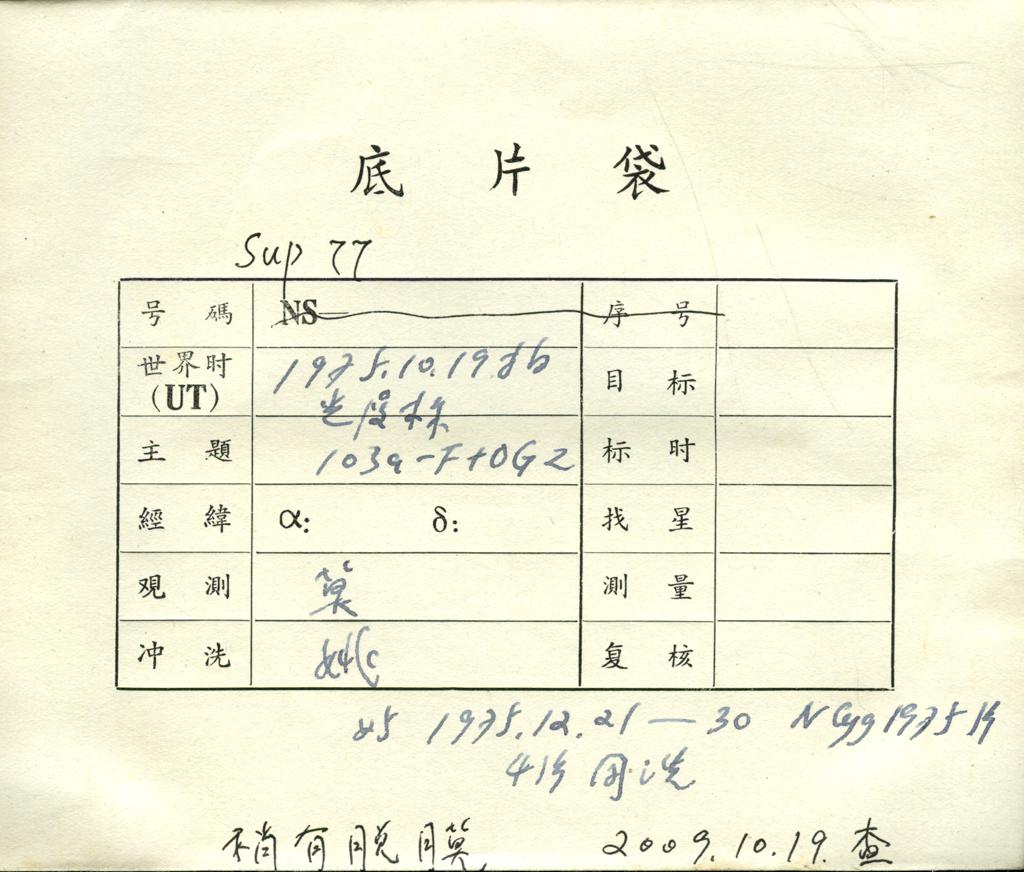 底片袋
Sup 77
号碼 NS 序号
世界时 (UT) 1975.10.19 拍 目标
光度标
主題 103a-F+OG2 标时
經緯 α: δ: 找星
观測 莫 測量
冲洗 姚 复核
与 1975.12.21—30 N Cyg 1975 片
4片 同洗
稍有脱膜 2009.10.19. 查